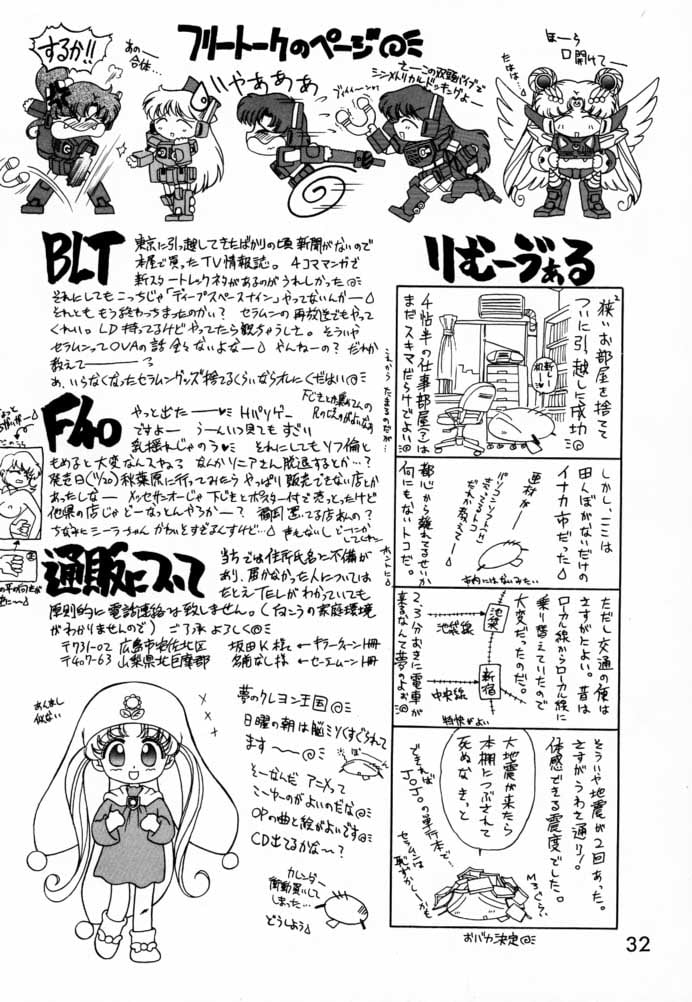 フリートークのページ@ミ
するか!!
あの──
合体…
いやあああ
ほーら
口開けてー
BLT
東京に引っ越してきたばかりの頃新聞がないので
本屋で買ったTV情報誌。4コママンガで
新スタートレックネタがあるのがうれしかった@ミ
それにしてもこっちじゃ「ディープスペースナイン」やってないんかー
それとももう終わっちまったのかい? セラムンの再放送でもやって
くれい。LD持ってるけどやってたら観ちゃうしさ。そういや
セラムンってOVAの話全々ないよなー やんねーの? だれか
教えてー
あ、いらなくなったセラムングッズ捨てるくらいならオレにくだはい@ミ
F40
やっと出た──♡ミ Hバリゲー
ですよー うーんいつ見てもすごい
乳揺れじゃのう♡ミ それにしてもソフ倫と
もめると大変なんスやろ? なんかソニアさん脱退するとか…?
発売日(11/20)秋葉原に行ってみたらやっぱり販売できない店とか
あったしなー メッセサンオーじゃ下じきとかポスター付で売っとったけど
他県の店じゃどーなっとんやろうか?
ちなみにシーラちゃんかわいとすぎるんすけど…
通販について
当方では住所氏名に不備が
あり、届かなかった人については
たとえTELがわかっていても
原則的に電話連絡は致しません。(向こうの家庭環境
がわかりませんので) ご了承よろしく@ミ
〒731-02 広島市安佐北区 坂田K.様
〒407-63 山梨県北巨摩郡 名前なし様 セーエムーン1冊
あんまし
似ない
夢のクレヨン王国@ミ
日曜の朝は脳ミソくすぐられて
ます~~@ミ
そーなんだアニメって
こーゆーのがよいのだな@ミ
OPの曲と絵がよいです@ミ
CD出てるかな~?
カレンダー
衝動買いして
しまった…
どうしよう
りむーゔぁる
狭いお部屋を捨てて
ついに引っ越しに成功@ミ
4帖半の仕事部屋(?)は
まだスキマだらけでよい@ミ
しかし、ここは
田んぼがないだけの
イナカ市だった
パソコンソフトは
だれか教えてー
都心から離れてるせいか
何にもないトコだ。
市内にはないみたい
ただし交通の便は
さすがによい。昔は
ローカル線からローカル線に
乗り替えていたので
大変だったのだ。
2、3分おきに電車が
来るなんて夢のよお@ミ
池袋
池袋線
新宿
中央線
特快がよい
そういや地震が2回あった。
さすがうわさ通り!
体感できる震度でした。
大地震が来たら
本棚につぶされて
死ぬなきっと
できればJOJOの単行本で…
セラムンは
恥ずかしーかも
おバカ決定@ミ
32